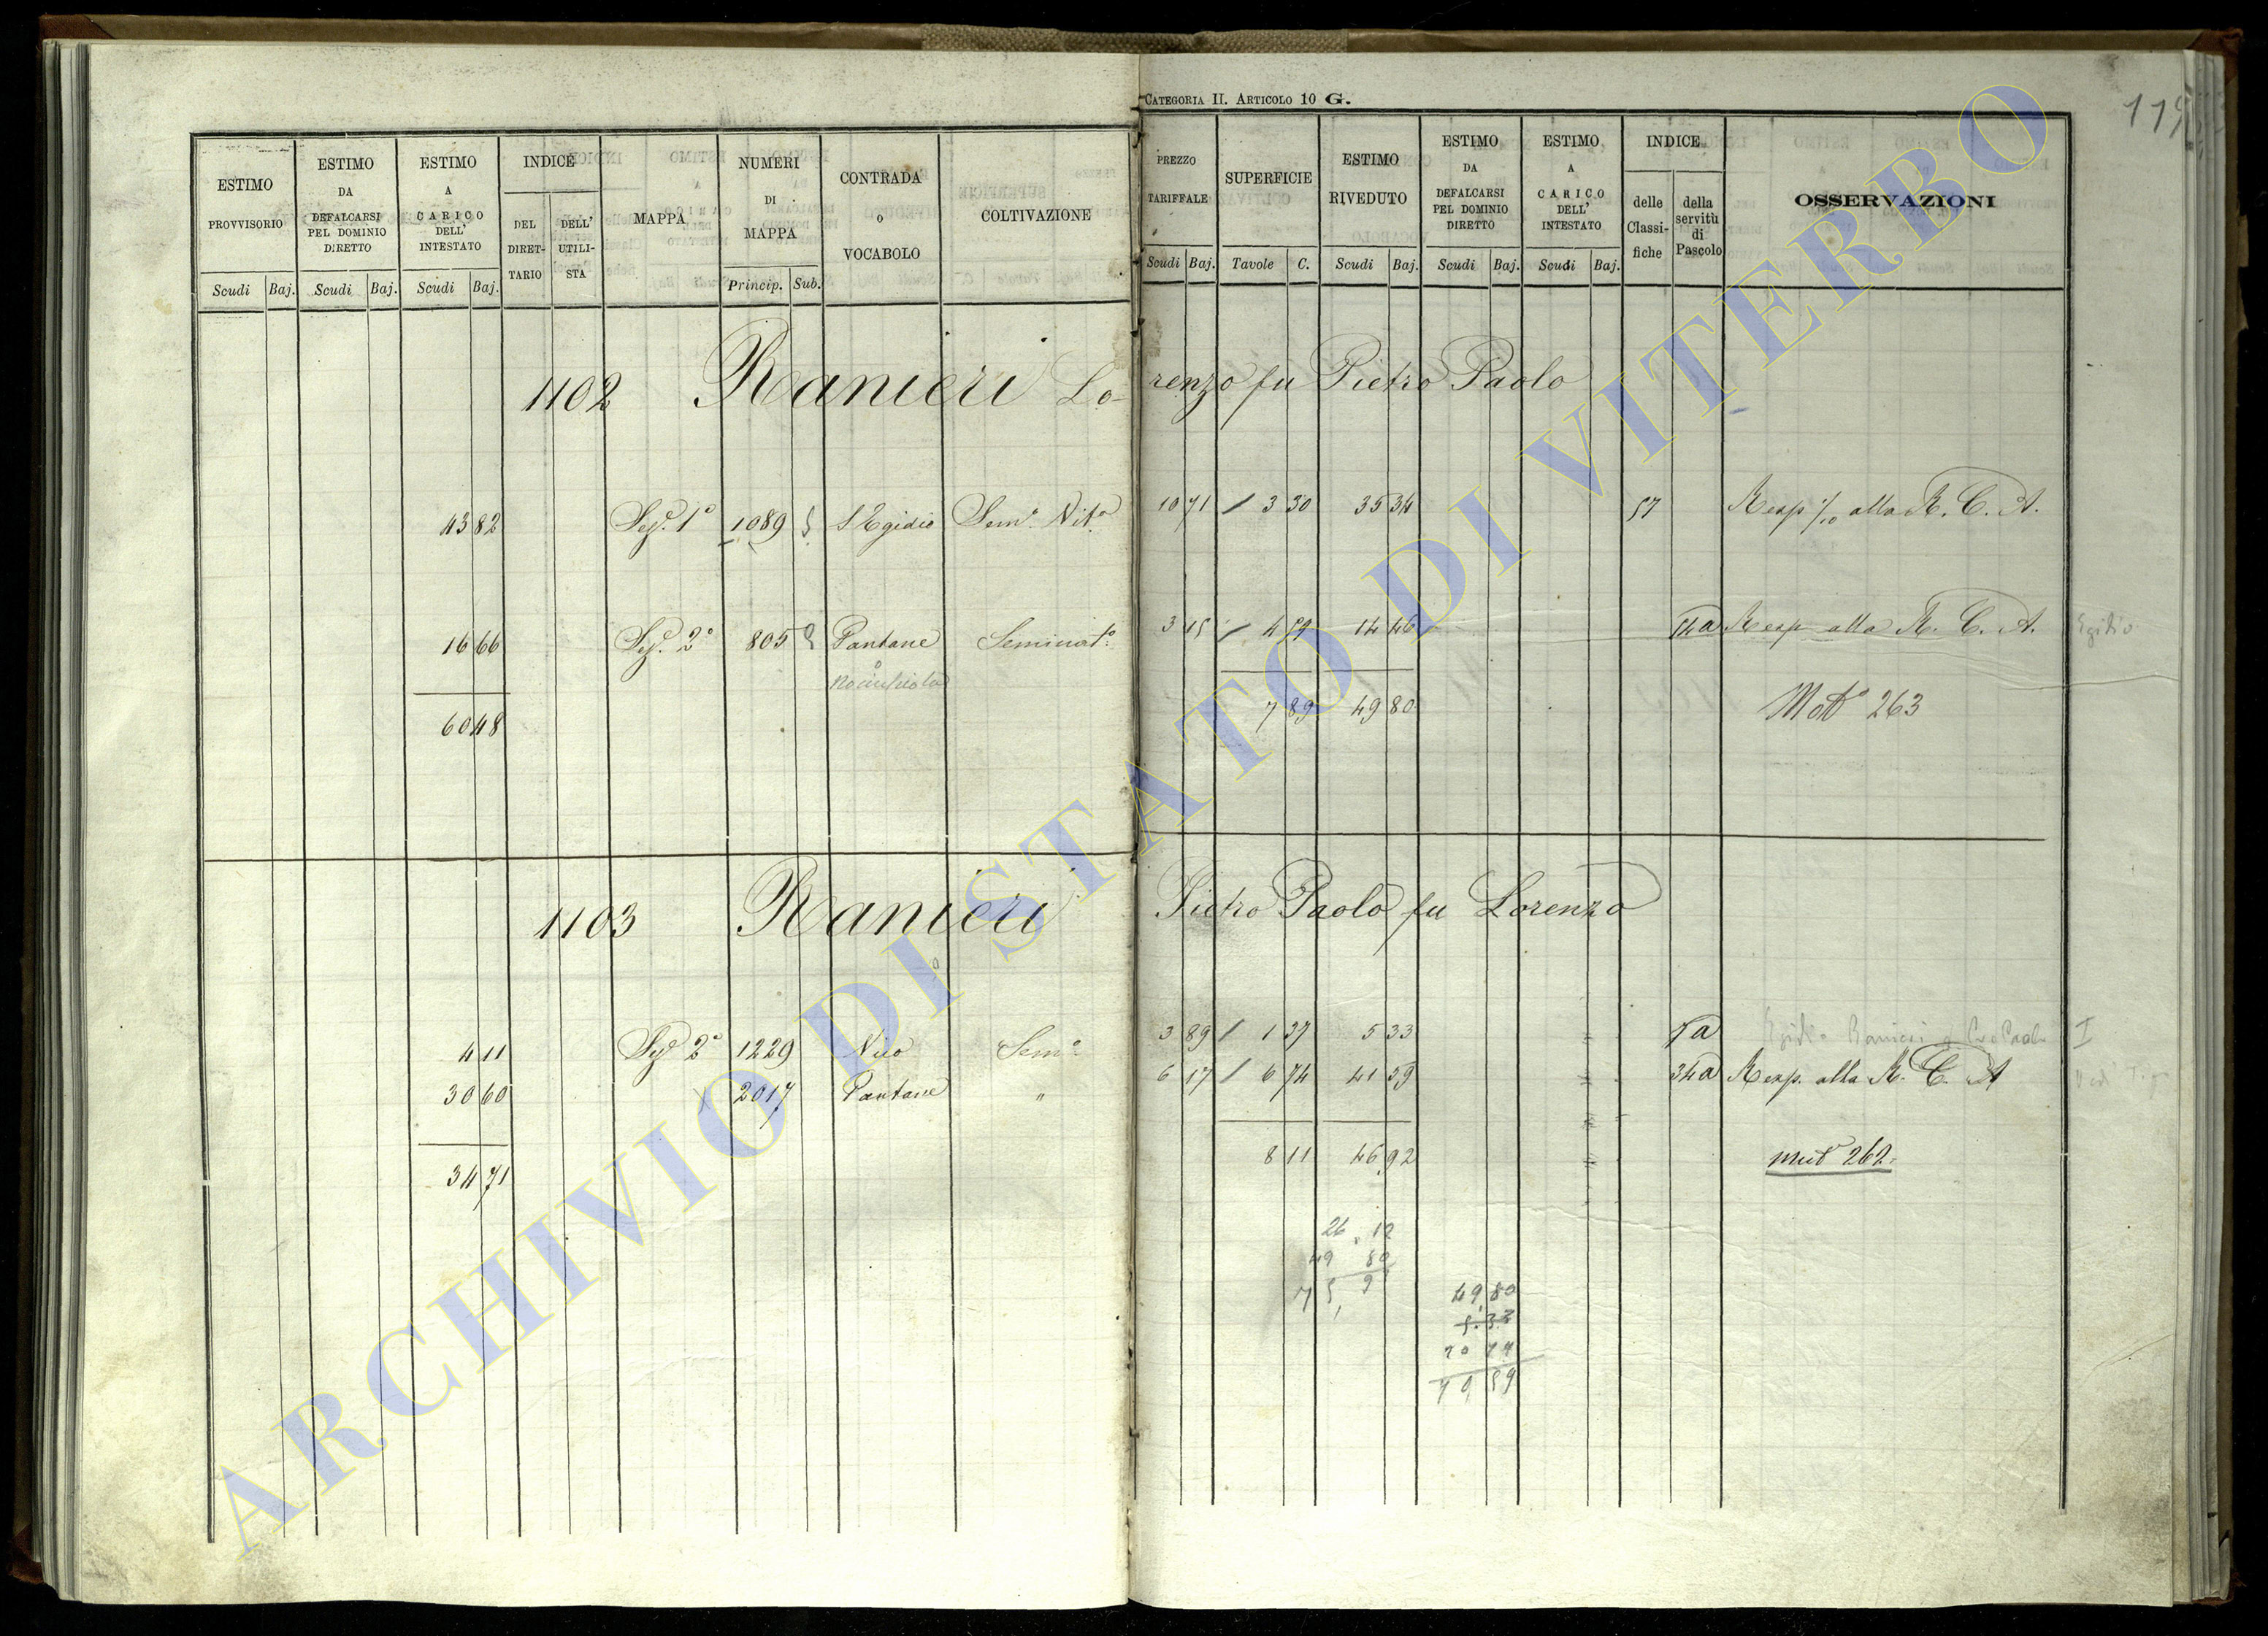 CATEGORIA II. ARTICOLO 10 G.
ESTIMO PROVVISORIO
ESTIMO DA DEFALCARSI PEL DOMINIO DIRETTO
ESTIMO A CARICO DELL' INTESTATO
INDICE
DEL DIRET-TARIO
DELL' UTILI-STA
MAPPA
NUMERI DI MAPPA
CONTRADA O VOCABOLO
COLTIVAZIONE
PREZZO TARIFFALE
SUPERFICIE
ESTIMO RIVEDUTO
ESTIMO DA DEFALCARSI PEL DOMINIO DIRETTO
ESTIMO A CARICO DELL' INTESTATO
INDICE
delle Classi-fiche
della servitù di Pascolo
OSSERVAZIONI
Scudi Baj. Scudi Baj. Scudi Baj. Princip. Sub. Scudi Baj. Tavole C. Scudi Baj. Scudi Baj. Scudi Baj.
1102 Ranieri Lo-renzo fu Pietro Paolo
43 82 Sez. 1° 1089 S. Egidio Sem. Vit. 10 71 / 3 30 35 34 57 Resp alla R. C. A.
16 66 Sez. 2° 805 2 Pantane Seminat. 3 15 / 4 59 14 46 54a Resp alla R. C. A. Egidio
60 48 7 89 49 80 Mod 263
1103 Ranieri Pietro Paolo fu Lorenzo
4 11 Sez. 2° 1229 Nito Sem. 3 89 / 1 37 5 33 5a Egidio Ranieri I
30 60 2017 Pantane " 6 17 / 6 74 41 59 34a Resp. alla R. C. A
34 71 8 11 46 92 mut 262
26,12
49 80
75, 9
49,80
5.33
79,59
ARCHIVIO DI STATO DI VITERBO